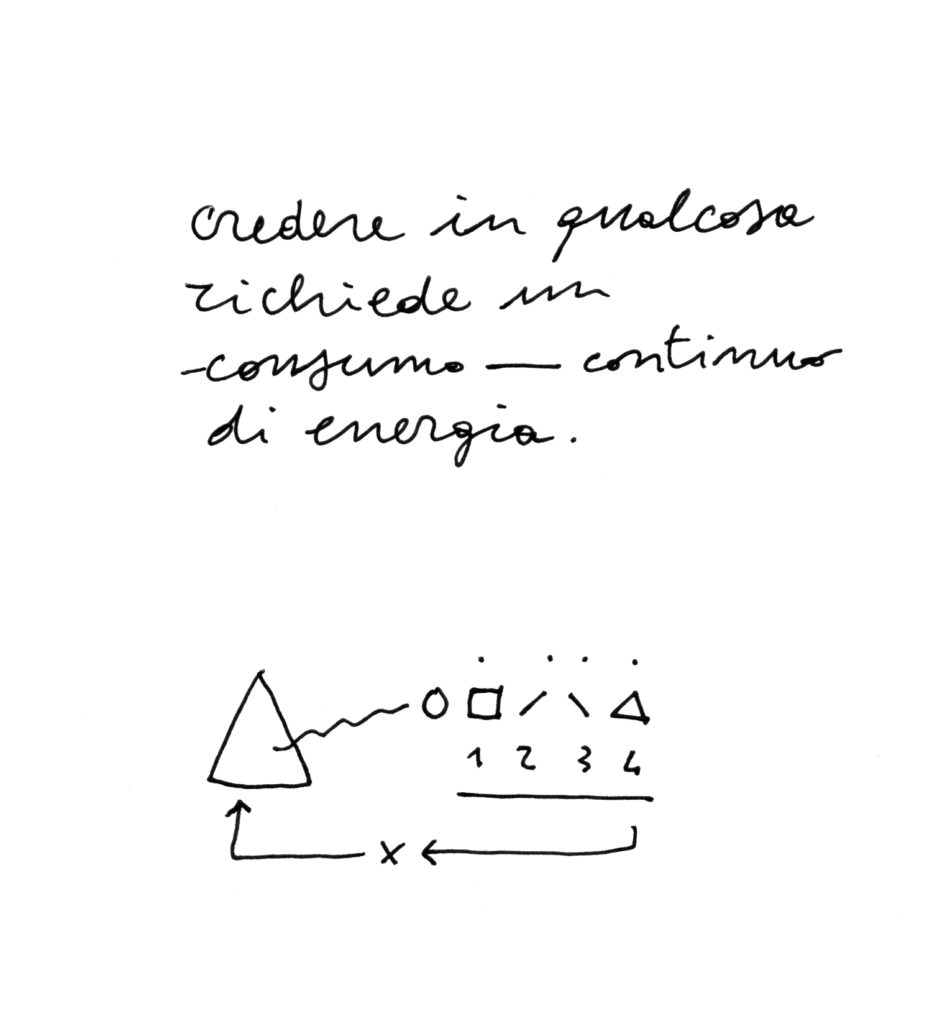 credere in qualcosa
richiede un
-consumo — continuo
di energia.
1 2 3 4
x